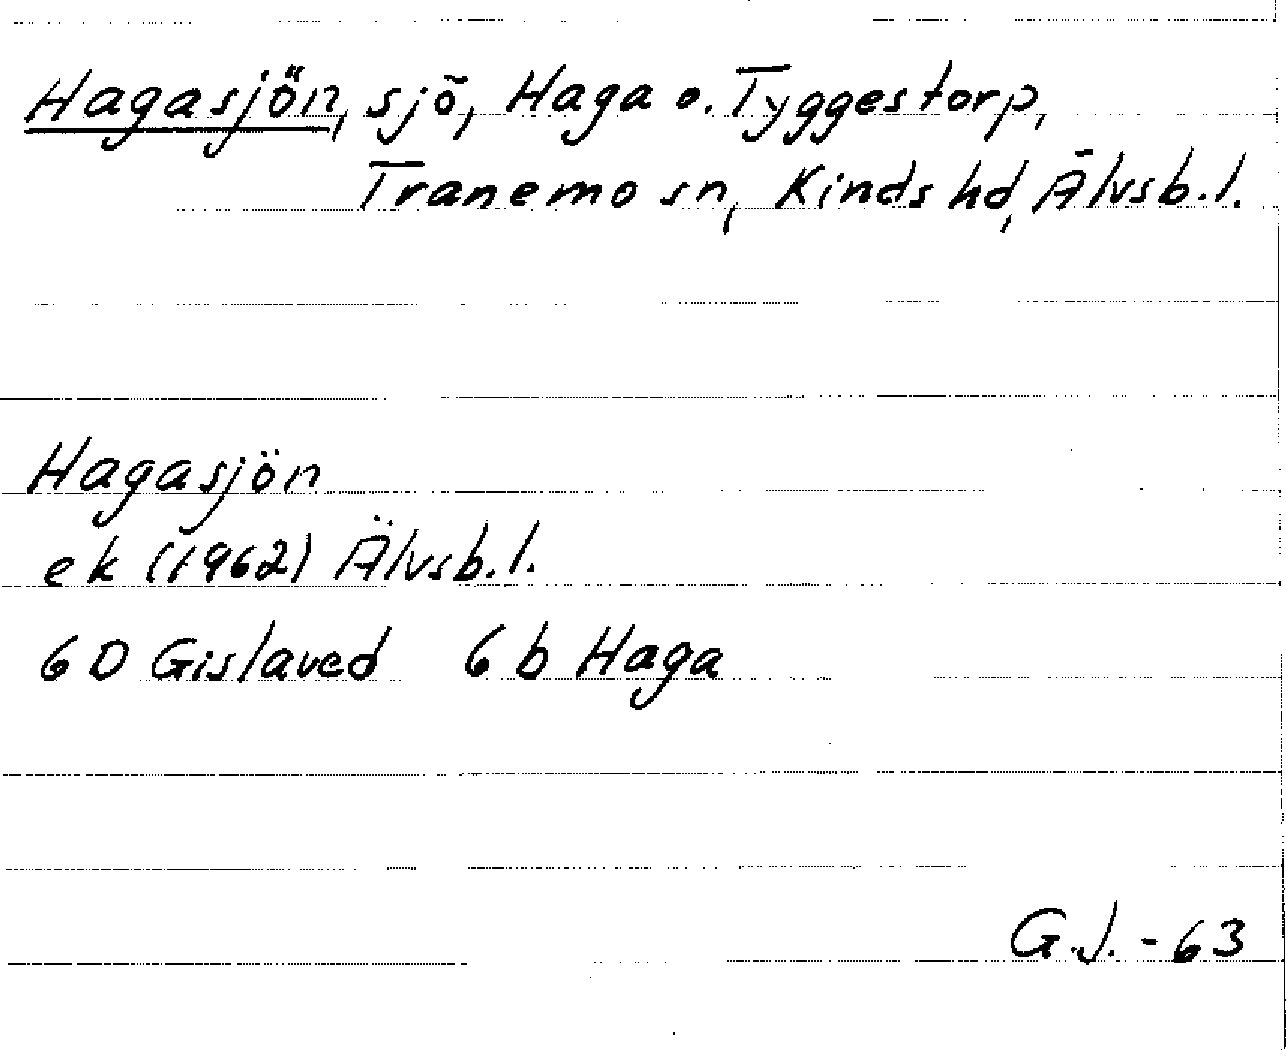 Hagasjön, sjö, Haga o. Tyggestorp,
Tranemo sn, Kinds hd, Älvsb.l.
Hagasjön
ek (1962) Älvsb.l.
6D Gislaved 6b Haga
G.J. -63